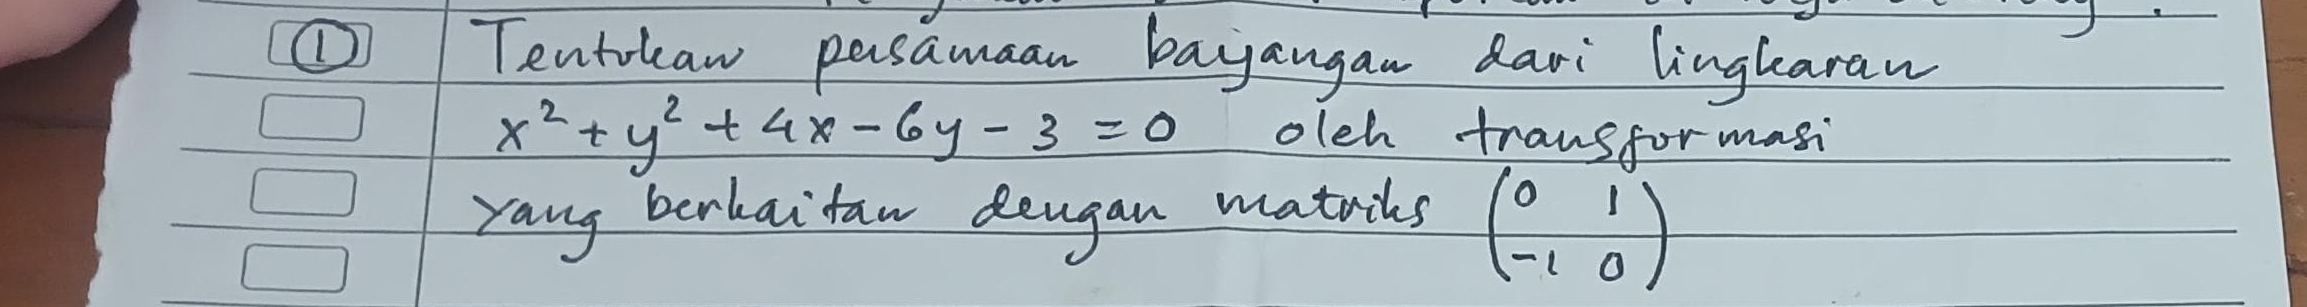 ① Tentukan persamaan bayangan dari lingkaran
x² + y² + 4x - 6y - 3 = 0 oleh transformasi
yang berkaitan dengan matriks (0 1
-1 0)